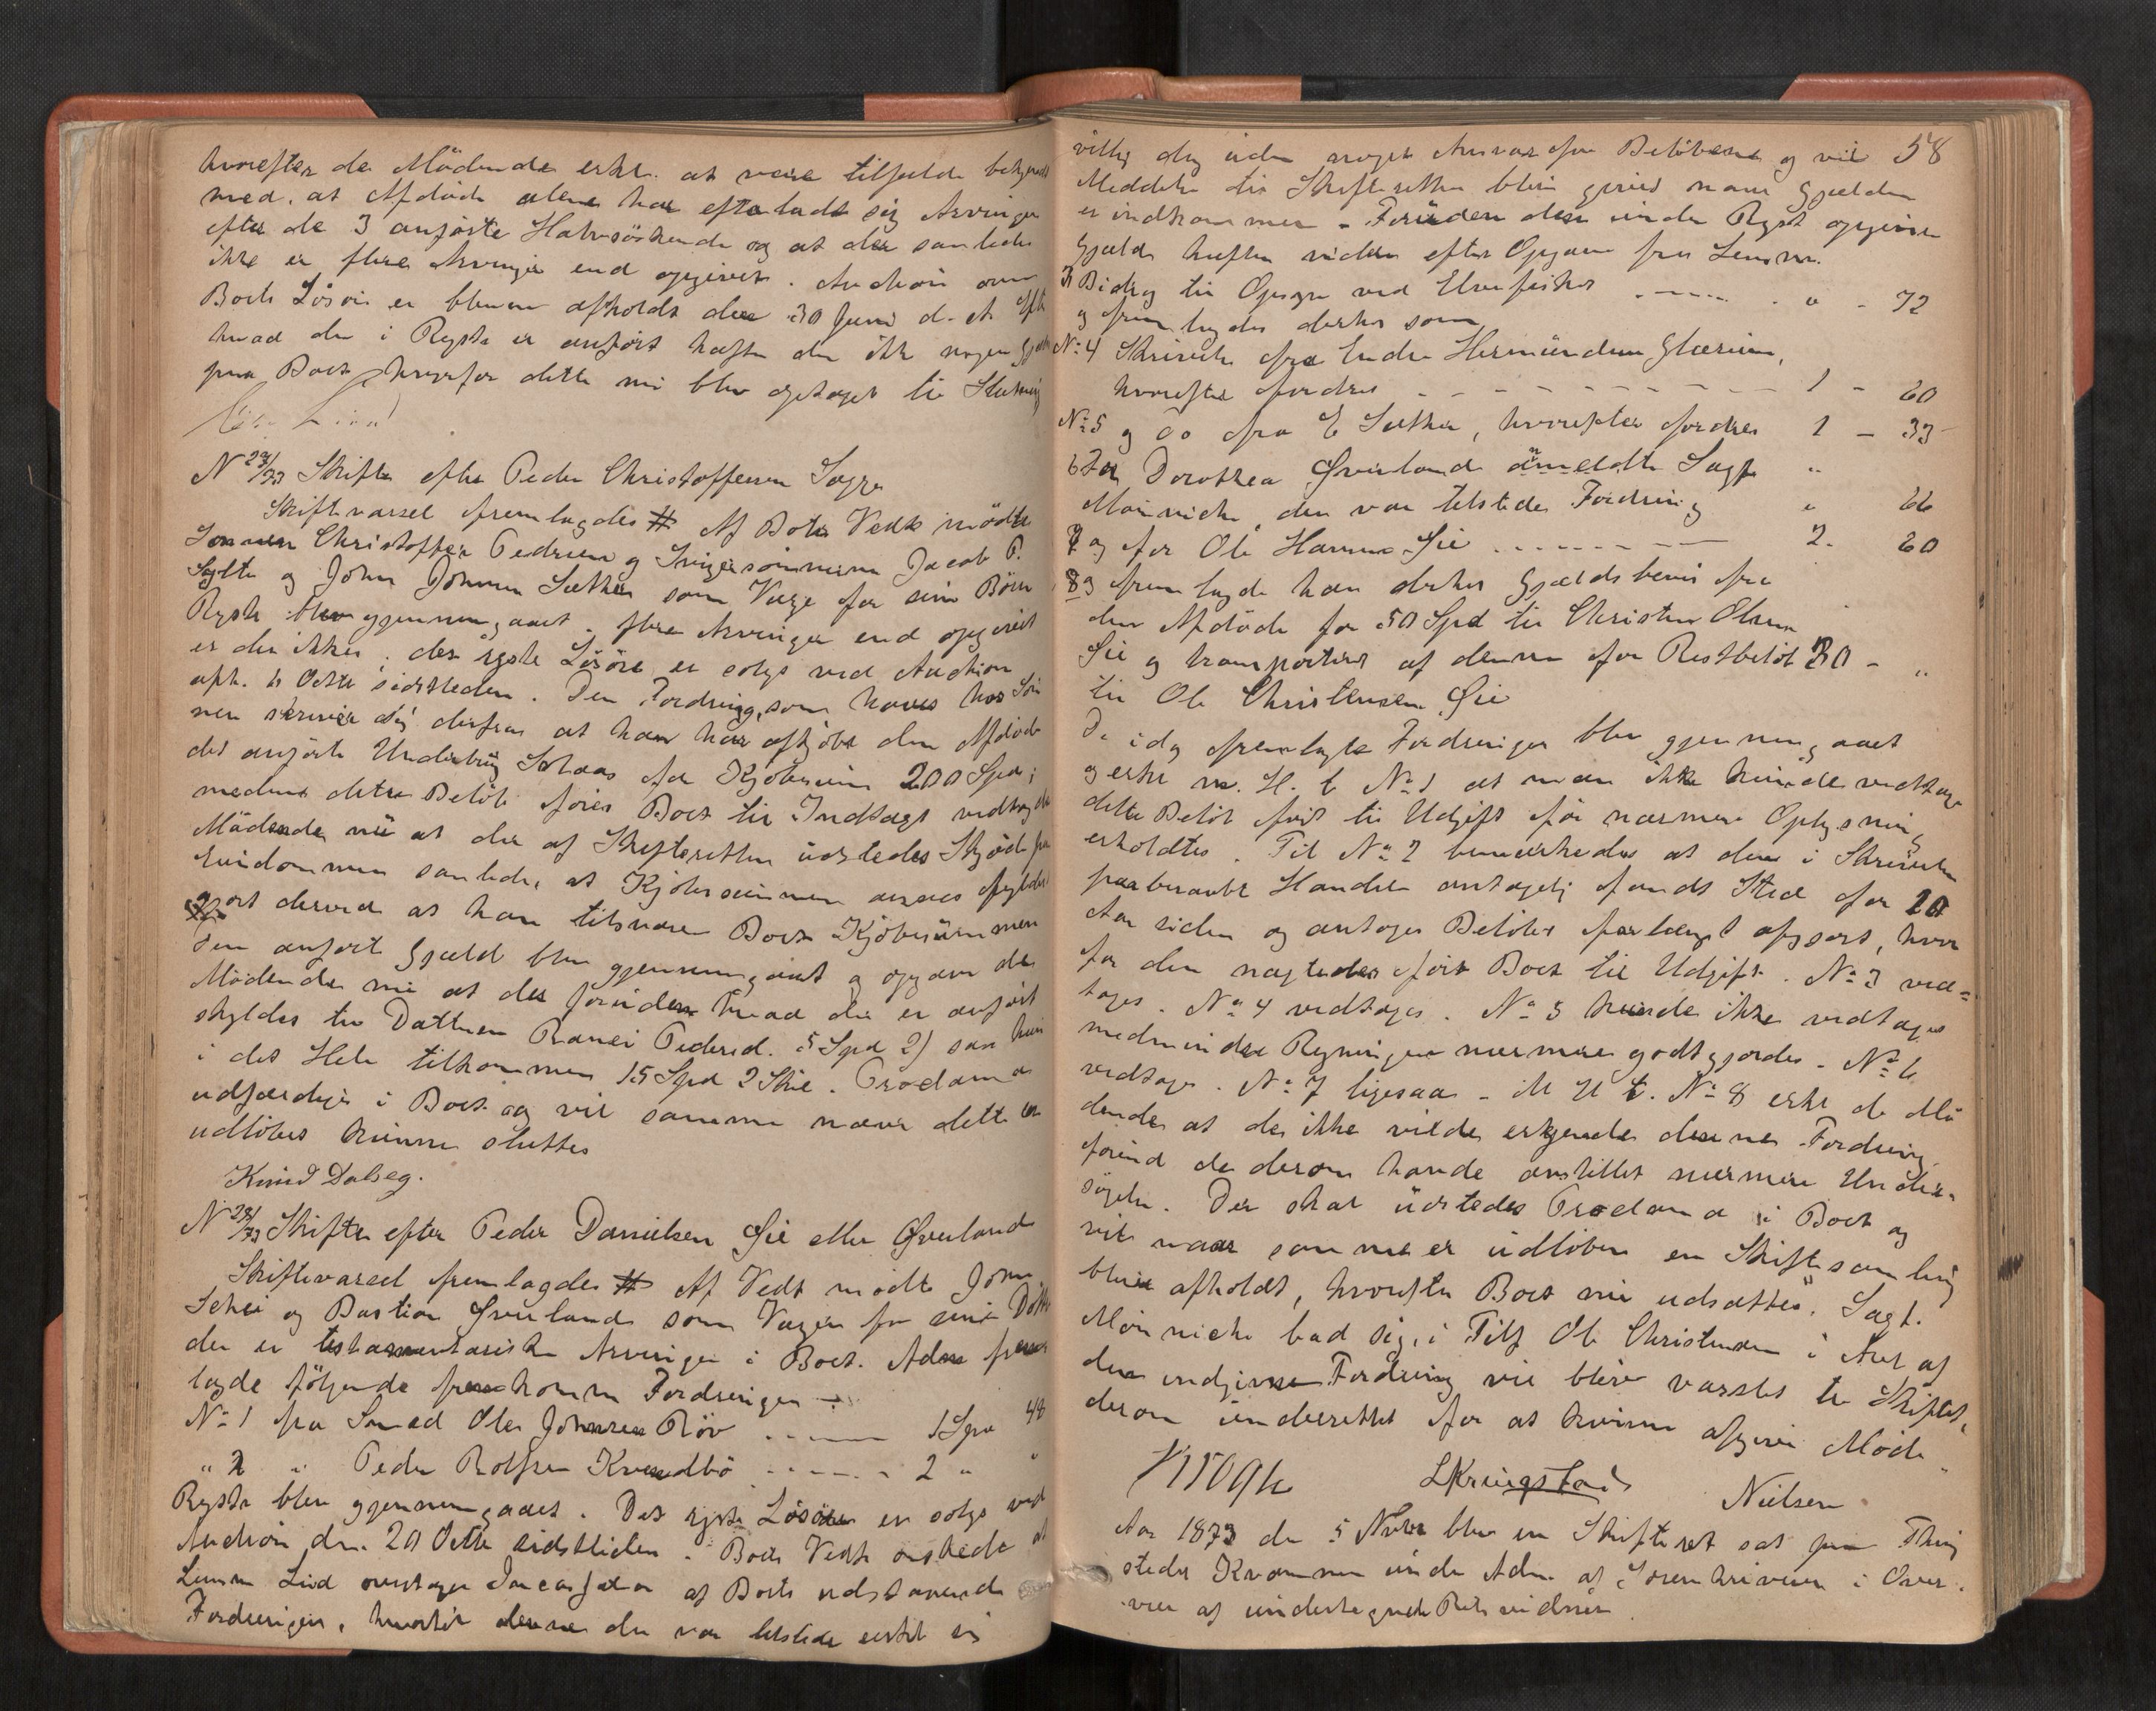 hvorefter de Mødende erkl. at være tilfulde bekjendt
med, at Afdøde alene har efterladt sig Arvinger
efter de 3 anførte Halvsøskende og at der saaledes
ikke er flere Arvinger end opgivet. Auction over
Boets Løsøre er bleven afholdt den 30 Juni d. A. Efter
hvad der i Regst. er anført hæfter der ikke nogen Gjæld
paa Boet hvorfor dette nu blev optaget til Slutning
N 23/73 Skifte efter Peder Christoffersen Sogge
Skiftevarsel fremlagdes # Af Boets Vedk mødte
Sønnen Christoffer Pedersen og Svigersønnerne Jacob P.
Sylte og John Johnsen Sæther som Værge for sine Børn
Regstr. blev gjennemgaaet. flere Arvinger end opgivet
er der ikke; det regste Løsøre er solgt ved Auction
aph. 18 Octbr sidstleden. Den Fordring, som haves hos Søn
nen skriver sig derfra at han har afkjøbt den Afdøde
det anførte Underbrug Solaas for Kjøbesum 200 Spd;
medens dette Beløb føres Boet til Indtægt vedtog de
Mødende nu at der af Skifteretten udstedes Skjøde paa
Eiendommen saaledes, at Kjøbesummen ansees fyldest
gjort derved at han tilsvarer Boet Kjøbesummen
Den anførte Gjæld blev gjennemgaaet og opgave de
Mødende nu at der foruden hvad der er anført
skyldes til Datteren Ranei Pedersd. 5 Spd 2) saa hun
i det Hele tilkommer 15 Spd 2 Skil. Proclama
udfærdiges i Boet og vil samme naar dette er
udløbet kunne sluttes
Knud Dalseg.
N 28/73 Skifte efter Peder Danielsen Øie eller Øverland
Skiftevarsel fremlagdes # Af Vedk mødte John
Schei og Bastian Øverland som Værger for sine Døttre
der er testamentariske Arvinger i Boet. Adm frem
lagde følgende fremkomne Fordringer
No 1 fra Smed Ole Johnsen Røv 1 Spd 48
" 2 " Peder Rolfsen Kvendbø 2 " "
Regstr blev gjennemgaaet. Det regste Løsøre er solgt ved
Auction den 20 Octbr sidstleden. Boets Vedk ønskede at
Lensm Lind overtager Incassation af Boets udstaaende
Fordringer, hvortil denne der var tilstede erklt sig
villig dog uden noget Ansvar for Beløbene og vil 58
Meddelelse til Skifteretten blive givet naar Gjælden
er indkommen - Foruden den under Regst opgivne
Gjæld hæfter videre efter Opgave fra Lensm.
3 Bidrag til Opsyn ved Elvefisket " - 72
og fremlagdes derhos som
No 4 Skrivelse fra Endre Hermundsen Glærum,
hvorefter fordres 1 - 60
No 5 og do fra E Sæther, hvorefter fordres 1 - 33
6 For Dorothea Øverland anmeldte Sagf "
Mönniche, der var tilstede Fordring " 66
7 og for Ole Hansen Øie 2. 60
8 og fremlagde han derhos Gjældsbevis fra
den Afdøde for 50 Spd til Christen Olsen
Øie og transporteret af denne for Restbeløb 30 - "
til Ole Christensen Øie
De idag fremlagte Fordringer blev gjennemgaaet
og erkl m. H. t No 1 at man ikke kunde vedtage
dette Beløb ført til Udgift før nærmere Oplysning
erholdtes. Til No 2 bemærkedes at den i Skrivelsen
paaberaabte Handel antagelig fandt Sted for 20
Aar siden og antages Beløbet forlængst afgjort, hvor
for den nægtedes ført Boet til Udgift. No 3 ved=
toges. No 4 vedtoges. No 5 kunde ikke vedtages
medmindre Regningen nærmere godtgjordes. No 6
vedtoges. No 7 ligesaa - M H t. No 8 erkl de Mø
dende at de ikke vilde erkjende denne Fordring
førend de derom havde anstillet nærmere Under=
søgelse. Der skal udstedes Proclama i Boet og
vil naar samme er udløben en Skiftesamling
blive afholdt, hvorefter Boet nu udsættes. Sagf.
Mönniche bad sig, i Tilf Ole Christensen i Anl af
den indgivne Fordring vil blive varslet til Skiftet,
derom underrettet for at kunne afgive Møde
Krogh LKringstad Nielsen
Aar 1873 den 5 Novbr blev en Skifteret sat paa Thing
stedet Kvamme under Adm. af Sorenskriveren i Over=
vær af undertegnede Retsvidner